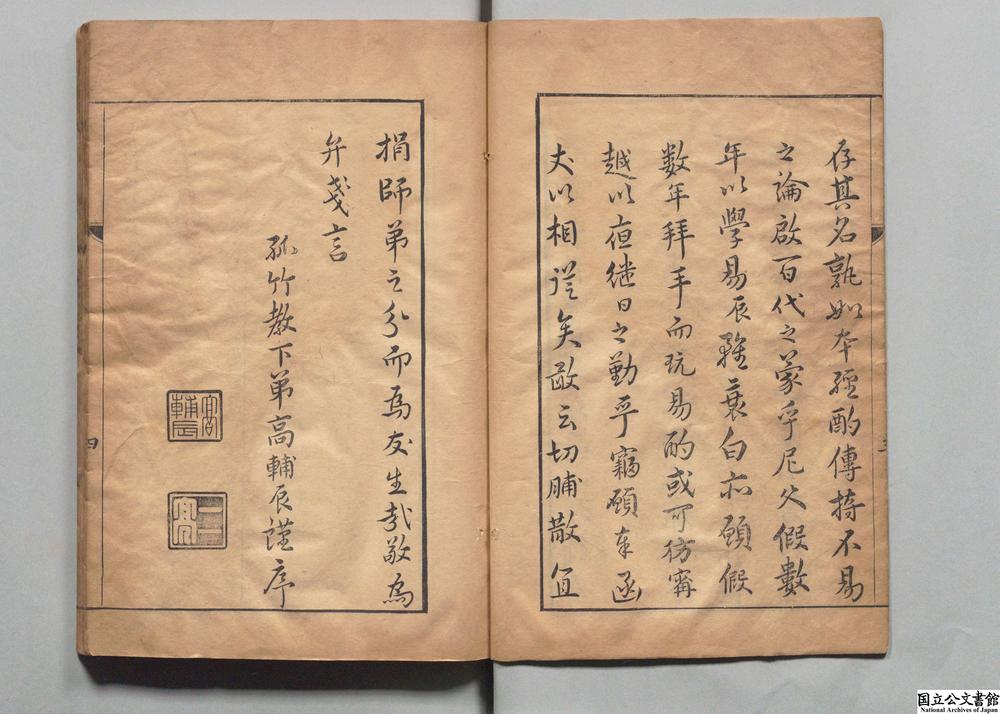 存其名孰如本經酌傳持不易
之論啟百代之蒙乎尼父假數
年以學易辰雖衰白亦願假
数年拜手而玩易酌或可彷甯
越以夜継日之勤乎竊願奉函
丈以相從矣敢云切脯散宜
捐師弟之分而為友生哉敬為
弁戔言
孤竹教下弟高輔辰謹序
四
国立公文書館
National Archives of Japan